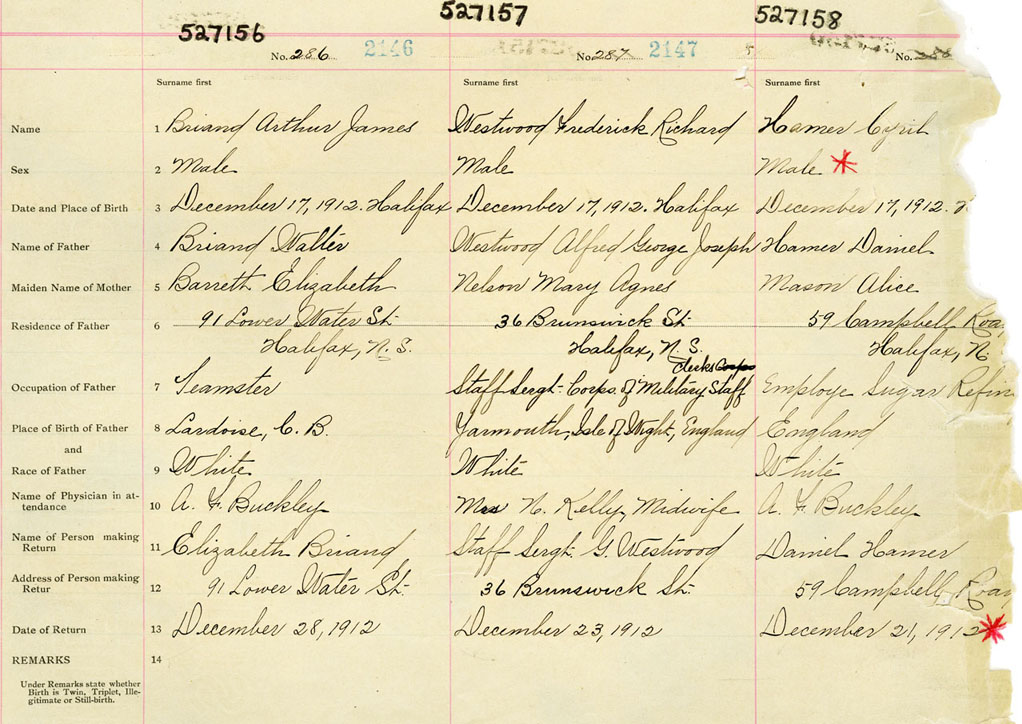 527156 527157 527158
No. 286 2146 No. 287 2147 No.
Surname first Surname first Surname first
Name 1 Briand Arthur James Westwood Frederick Richard Hamer Cyril
Sex 2 Male Male Male
Date and Place of Birth 3 December 17, 1912. Halifax December 17, 1912. Halifax December 17, 1912.
Name of Father 4 Briand Walter Westwood Alfred George Joseph Hamer Daniel
Maiden Name of Mother 5 Barrett Elizabeth Nelson Mary Agnes Mason Alice
Residence of Father 6 91 Lower Water St. 36 Brunswick St. 59 Campbell Roa
Halifax, N.S. Halifax, N.S. Halifax, N.
Clerks Corps
Occupation of Father 7 Teamster Staff Sergt. Corps. of Military Staff Employe Sugar Refin
Place of Birth of Father 8 Lardoise, C.B. Yarmouth, Isle of Wight, England England
and
Race of Father 9 White White White
Name of Physician in at-
tendance 10 A. F. Buckley Mrs N. Kelly, Midwife A. F. Buckley
Name of Person making
Return 11 Elizabeth Briand Staff Sergt. G. Westwood Daniel Hamer
Address of Person making
Retur 12 91 Lower Water St. 36 Brunswick St. 59 Campbell Roa
Date of Return 13 December 28, 1912 December 23, 1912 December 21, 1912
REMARKS 14
Under Remarks state whether
Birth is Twin, Triplet, Ille-
gitimate or Still-birth.